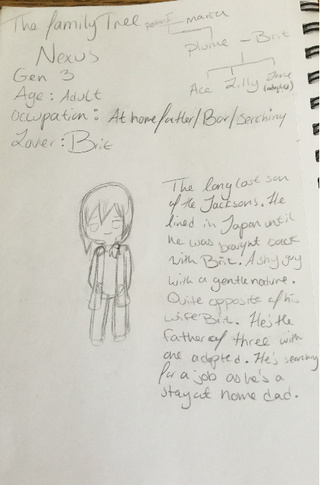 The family Tree
maria
Plume - Brit
Ace Lilly
(adopted)
Nexus
Gen 3
Age: Adult
Occupation: At home/father/Bar/Serching
Lover: Brit
The long last son
of the Jacksons. He
lived in Japan until
he was brought back
with Brit. A shy guy
with a gentle nature.
Quite opposite of his
wife Brit. He's the
Father of three with
one adopted. He's serching
for a job as he's a
stay at home dad.